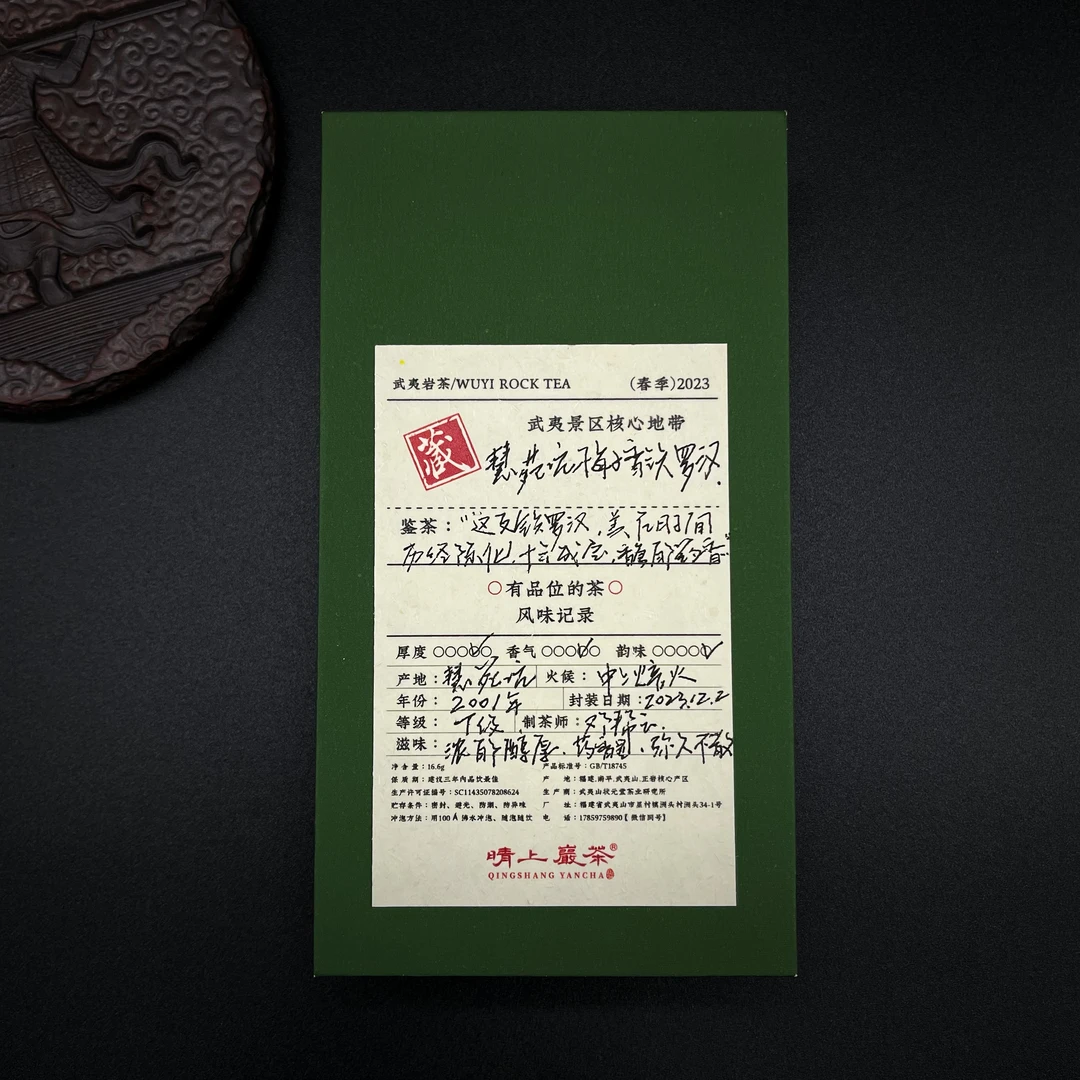 武夷岩茶/WUYI ROCK TEA （春季）2023
藏
武夷景区核心地带
慧苑坑梅子香铁罗汉.
鉴茶："这支铁罗汉，美在时间
历经陈化，十武成定，馥郁药香"
○有品位的茶○
风味记录
厚度 ○○○○○ 香气 ○○○○○ 韵味 ○○○○○
产地：慧苑坑 火候：中焙火
年份：2001年 封装日期：2023.12.2
等级：级 制茶师：
滋味：浓郁醇厚、药香显、弥久不散
净含量：16.6g 产品标准号：GB/T18745
保质期：建议三年内品饮最佳 产 地：福建.南平.武夷山.正岩核心产区
生产许可证编号：SC11435078208624 生产商：武夷山状元堂茶业研究所
贮存条件：密封、避光、防潮、防异味 厂 址：福建省武夷山市星村镇洲头村洲头34-1号
冲泡方法：用100 沸水冲泡、随泡随饮 电 话：17859759890【微信同号】
晴上巖茶®
QINGSHANG YANCHA